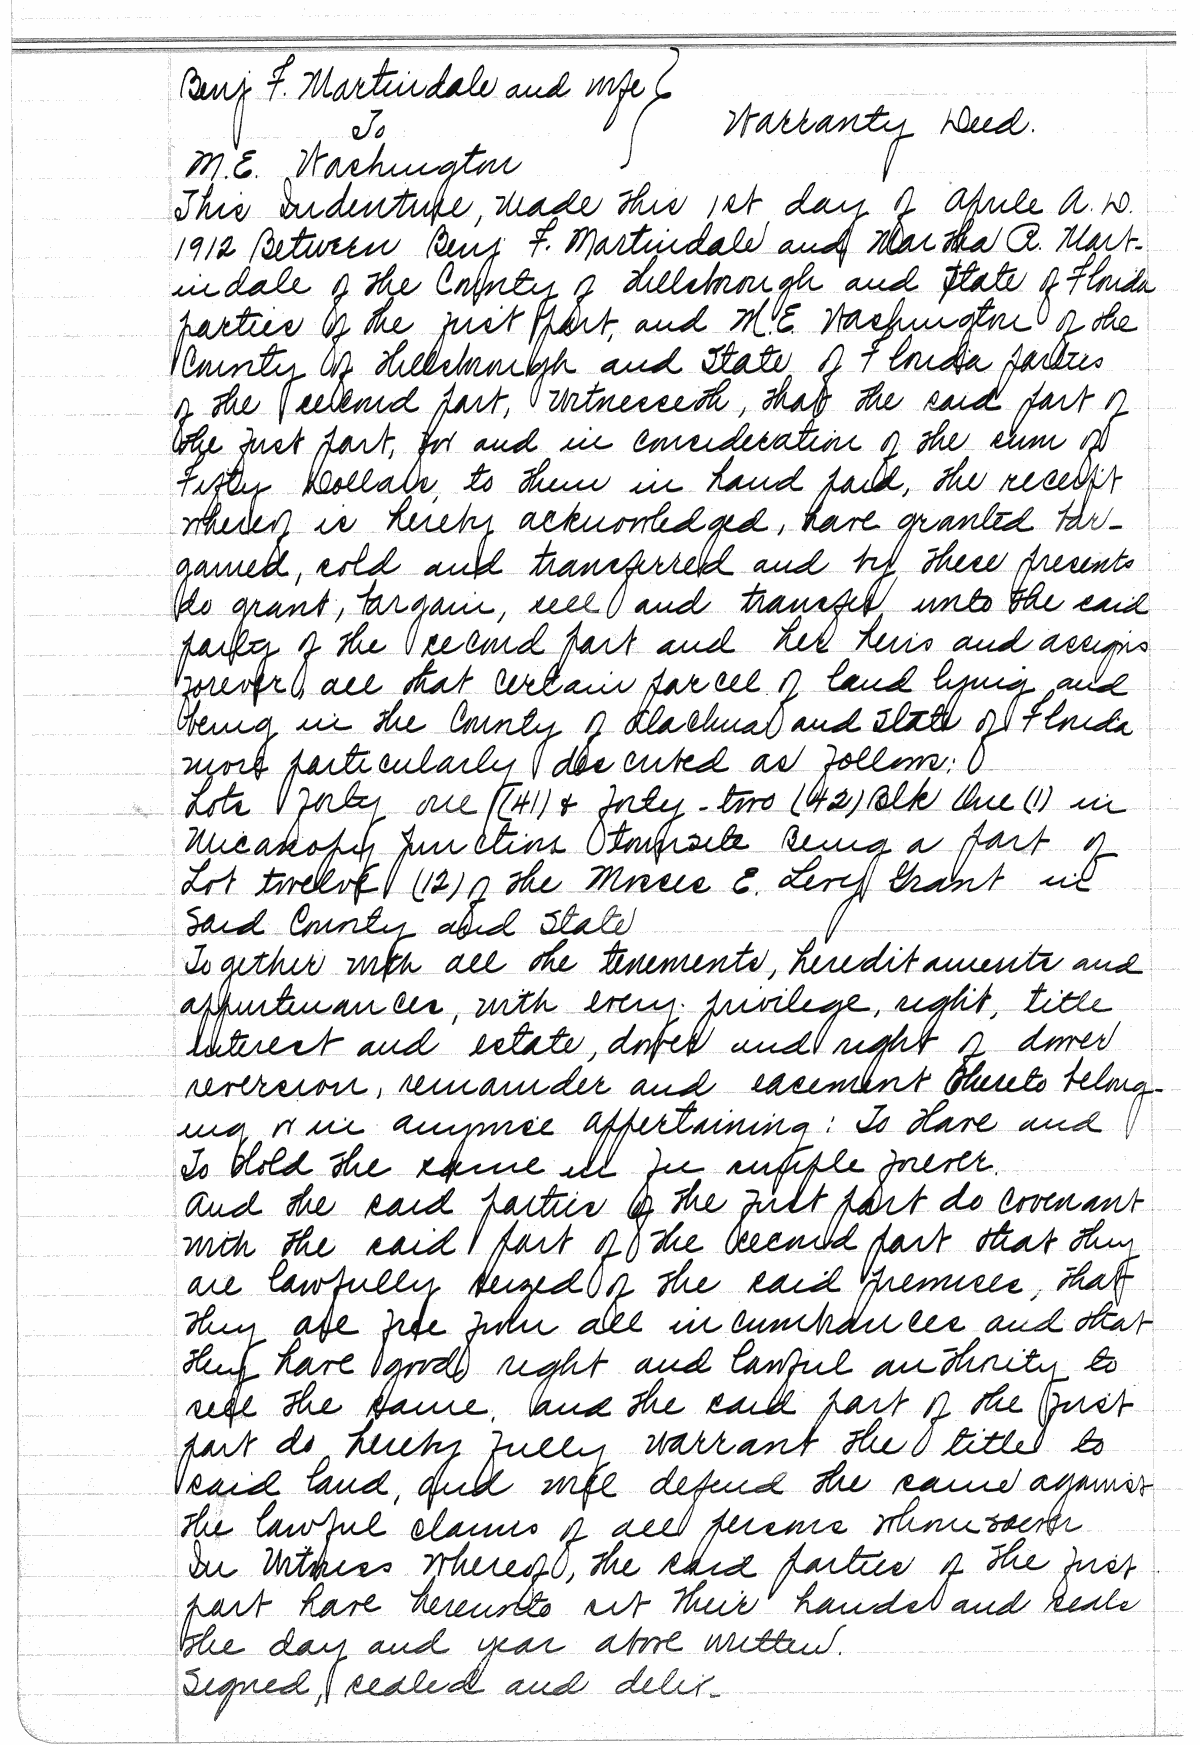 Benj F. Martindale and wife
To
Warranty Deed.
M.E. Washington
This Indenture, Made this 1st day of Aprile A.D.
1912 Between Benj F. Martindale and Martha A. Mart-
indale of the County of Hillsborough and State of Florida
parties of the first part, and M.E. Washington of the
County of Hillsborough and State of Florida parties
of the second part, Witnesseth, that the said part of
the first part, for and in consideration of the sum of
Fifty Dollars, to them in hand paid, the receipt
whereof is hereby acknowledged, have granted bar-
gained, sold and transferred and by these presents
do grant, bargain, sell and transfer unto the said
party of the second part and her heirs and assigns
forever all that certain parcel of land lying and
being in the County of Alachua and State of Florida
more particularly described as follows:
Lots Forty one (41) & Forty-two (42) Blk One (1) in
Micanopy Junction townsite Being a part of
Lot twelve (12) of the Moses E. Levy Grant in
Said County and State
Together with all the tenements, hereditaments and
appurtenances, with every privilege, right, title
interest and estate, dower and right of dower
reversion, remainder and easement thereto belong-
ing or in anywise appertaining: To Have and
To Hold the same in fee simple forever.
And the said parties of the first part do covenant
with the said part of the second part that they
are lawfully seized of the said premises, that
they are free from all incumbrances and that
they have good right and lawful authority to
sell the same, and the said part of the first
part do hereby fully warrant the title to
said land, and will defend the same against
the lawful claims of all persons whomsoever
In Witness Whereof, the said parties of the first
part have hereunto set their hands and seals
the day and year above written.
Signed, sealed and deliv-